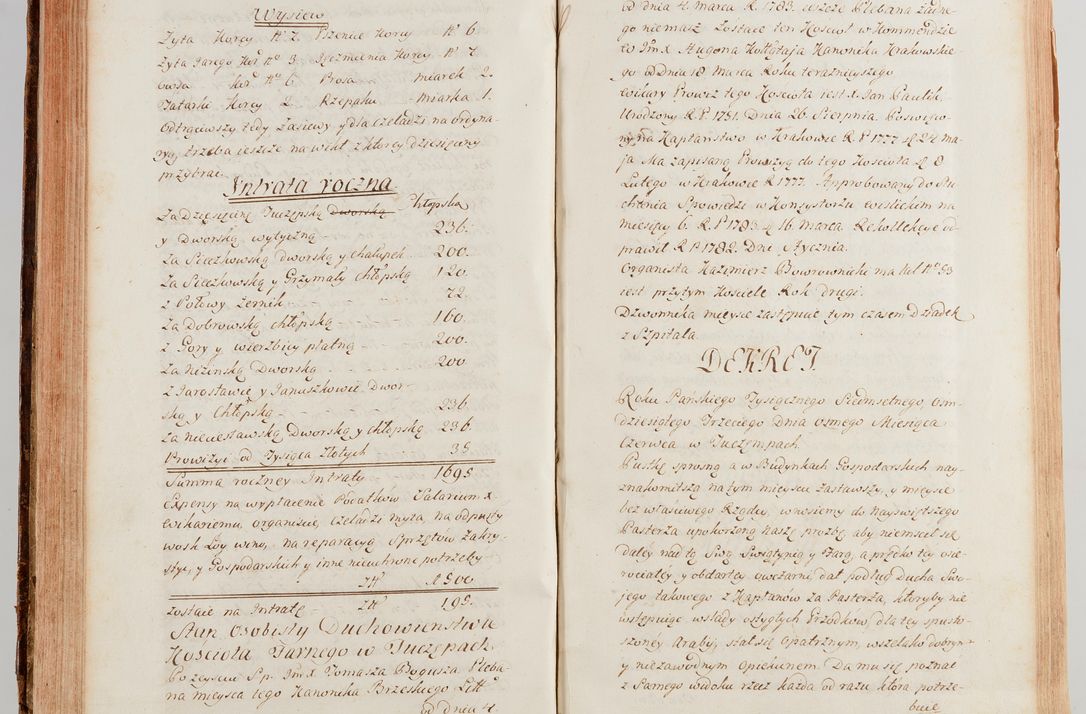 Wysiew
Zyta Korcy Nº 7. Pszenice Korcy Nº 6.
Zyta Jarego Kor. Nº 3. Jęczmienia Korcy Nº 7.
Owsa Kor. Nº 6. Prosa miarek 2.
Tatarki Korcy 2. Rzepaku Miarka 1.
Odtrąciwszy tedy Zasiewy y dla Czeladzi na ordyna-
ryą, trzeba ieszcze na wikt z Korcy dziesięciny
przybrać.
Intrata roczna
Za Dziesięcinę Tuczępską Dworską Chłopską
y Dworską wytyczną 236.
Za Sieczkowską Dworską y Chałupek 200.
Za Sieczkowską y Grzymały Chłopską 120.
z Połowy Zernik 72.
Za Dobrowską Chłopską 160.
z Gory y Wierzbicy płatną 200.
Za Nizinską Dworską 200
z Jarosławic y Januszkowic Dwor-
ską y Chłopską 236.
Za Dworską y Chłopską 236.
Prowizyi od Tysiąca Złotych 35
Summa roczney Intraty 1695
Expensy na wypłacenie Podatków Salarium X
Wikaremu, organiście, Czeladzi myta, na odpusty
wosk Łóy wino, na reparacyą Sprzętów Zakry-
stye, y Gospodarskich y inne nieuchronne potrzeby
Złł 1500
zostaie na Intratę Złł 195.
Stan Osobisty Duchowienstwa
Kościoła Farnego w Tuczępach
Po zeysciu Sp. JmX Tomasza Bogusza Pleba-
na mieysca tego Kanonika Brzeskiego Litt
od dnia 4.
od dnia 4. Marca R. 1783. ieszcze Plebana żadne-
go niemasz Zostaie ten Kosciół w Kommendzie
to JmX Hugona Kołłątaja Kanonika Krakowskie
go od Dnia 18 Marca Roku teraznieyszego
Wikary Prowiz tego Kościoła iest X. Jan Paulik.
Urodzony R.P 1751. Dnia 26 Sierpnia. Poswięco
ny na Kapłaństwo w Krakowie R.P 1777 d. 24 ma-
ja Ma zapisaną Prowizyą do tego Kościoła d. 8
Lutego w Krakowie R 1777. Approbowany do Słu
chania Spowiedzi w Konsystorzu na
miesięcy 6. R.P 1783. d 16. marca Rekollekcye od
prawił R.P 1782. Dni Stycznia.
Organista Kazimierz Bowrownicki ma lat Nº 53
iest przytym Kościele Rok drugi.
Dzwonnika mieysce zastępuie tym czasem Dziadek
z Szpitala.
DEKRET
Roku Pańskiego Tysiącznego Siedmsetnego, Osm-
dziesiątego Trzeciego Dnia osmego Miesiąca
Czerwca w Tuczempach
Pustkę sprosną a w Budynkach Gospodarskich nay-
znakomitszą na tym mieyscu zastawszy, y mieysce
bez własciwego Rządcy, wnosiemy do Nayswiętszego
Pasterza upokorzoną naszę prozbę, aby niemscił się
daley nad tą Swą Swiątynią y Farą, a prędko tey osie-
rociałey, y obdartey owczarni dał podług Ducha Swo-
jego takowego z Kapłanów za Pasterza, ktoryby nie
wstępuiąc w ślady ostygłych Przodków, dla tey spusto-
szoney Araby, stał się Opatrznym, wszelako dobryn
y niezawodnym Opiekunem. Da mu się poznać
z Samego widoku rzecz każda od razu, która potrze-
buie